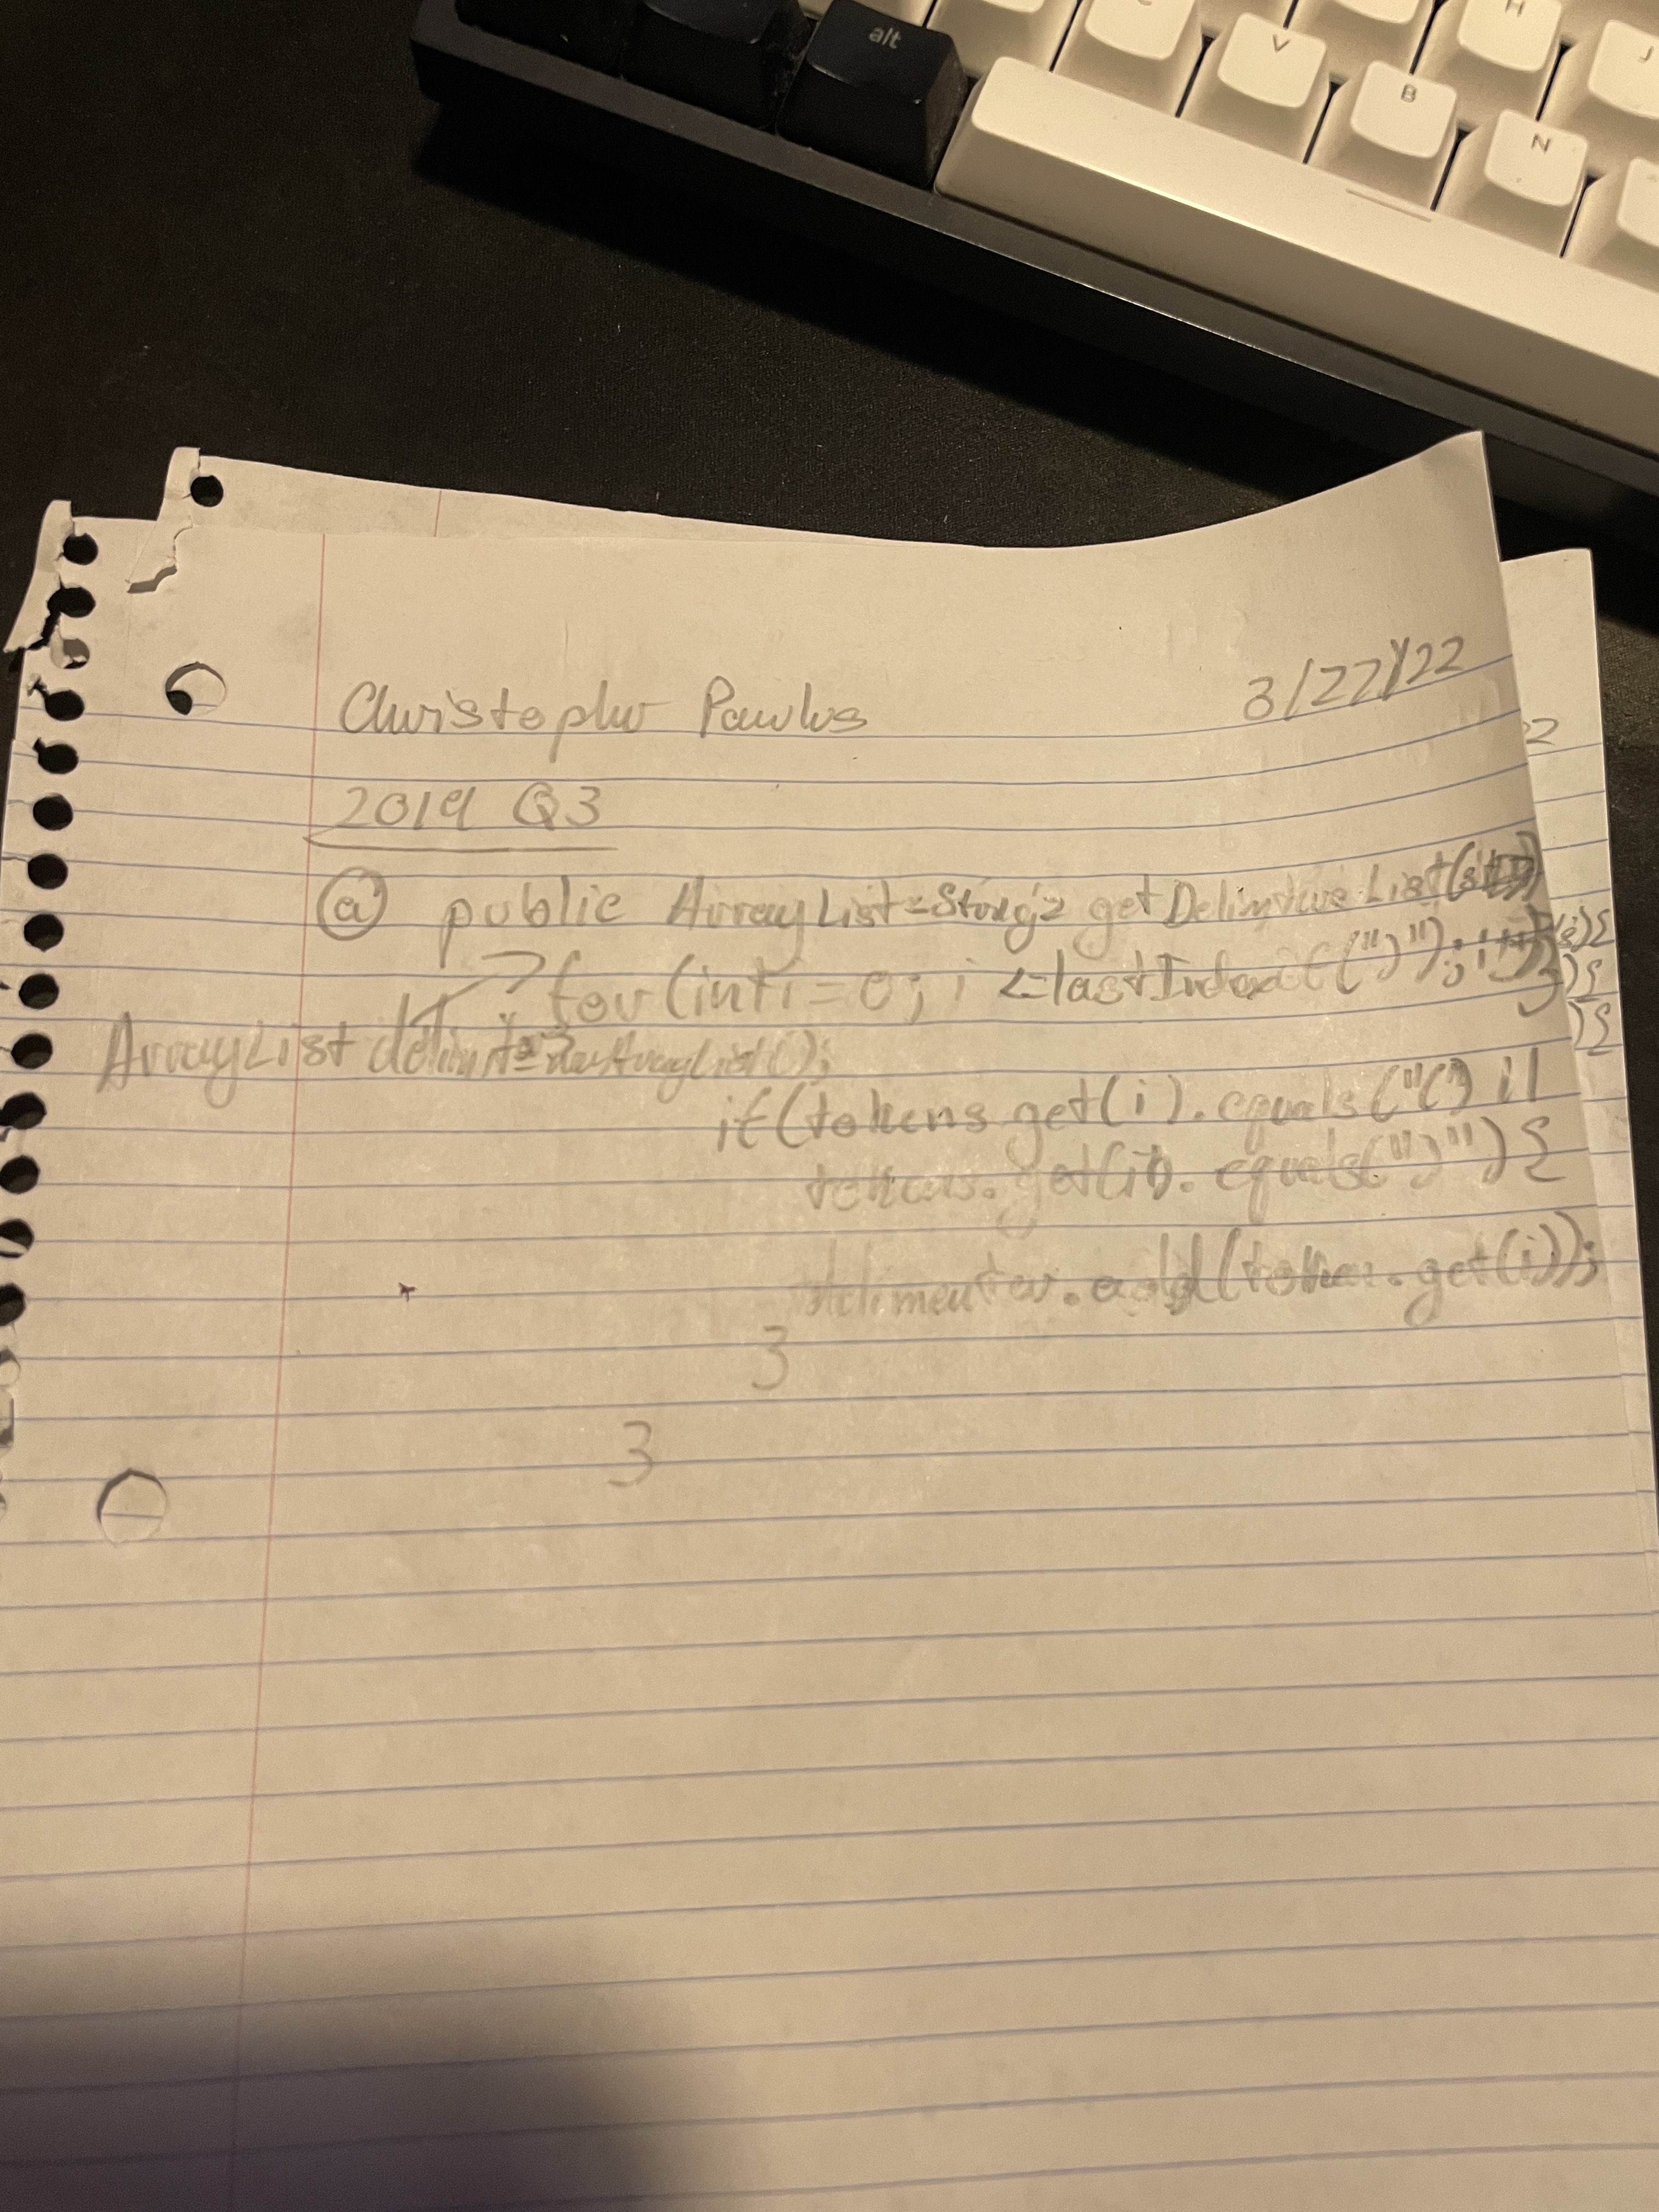 alt
C
V
B
H
N
J
Christopher Paulus 3/27/22
2019 Q3
(a) public ArrayList<String> getDelimitersList(
for(int i = 0; i <= lastIndexOf(")"); i++){
ArrayList delim = new ArrayList();
if(tokens.get(i).equals("(") ||
tokens.get(i).equals(")")){
delimenter.add(token.get(i));
}
}